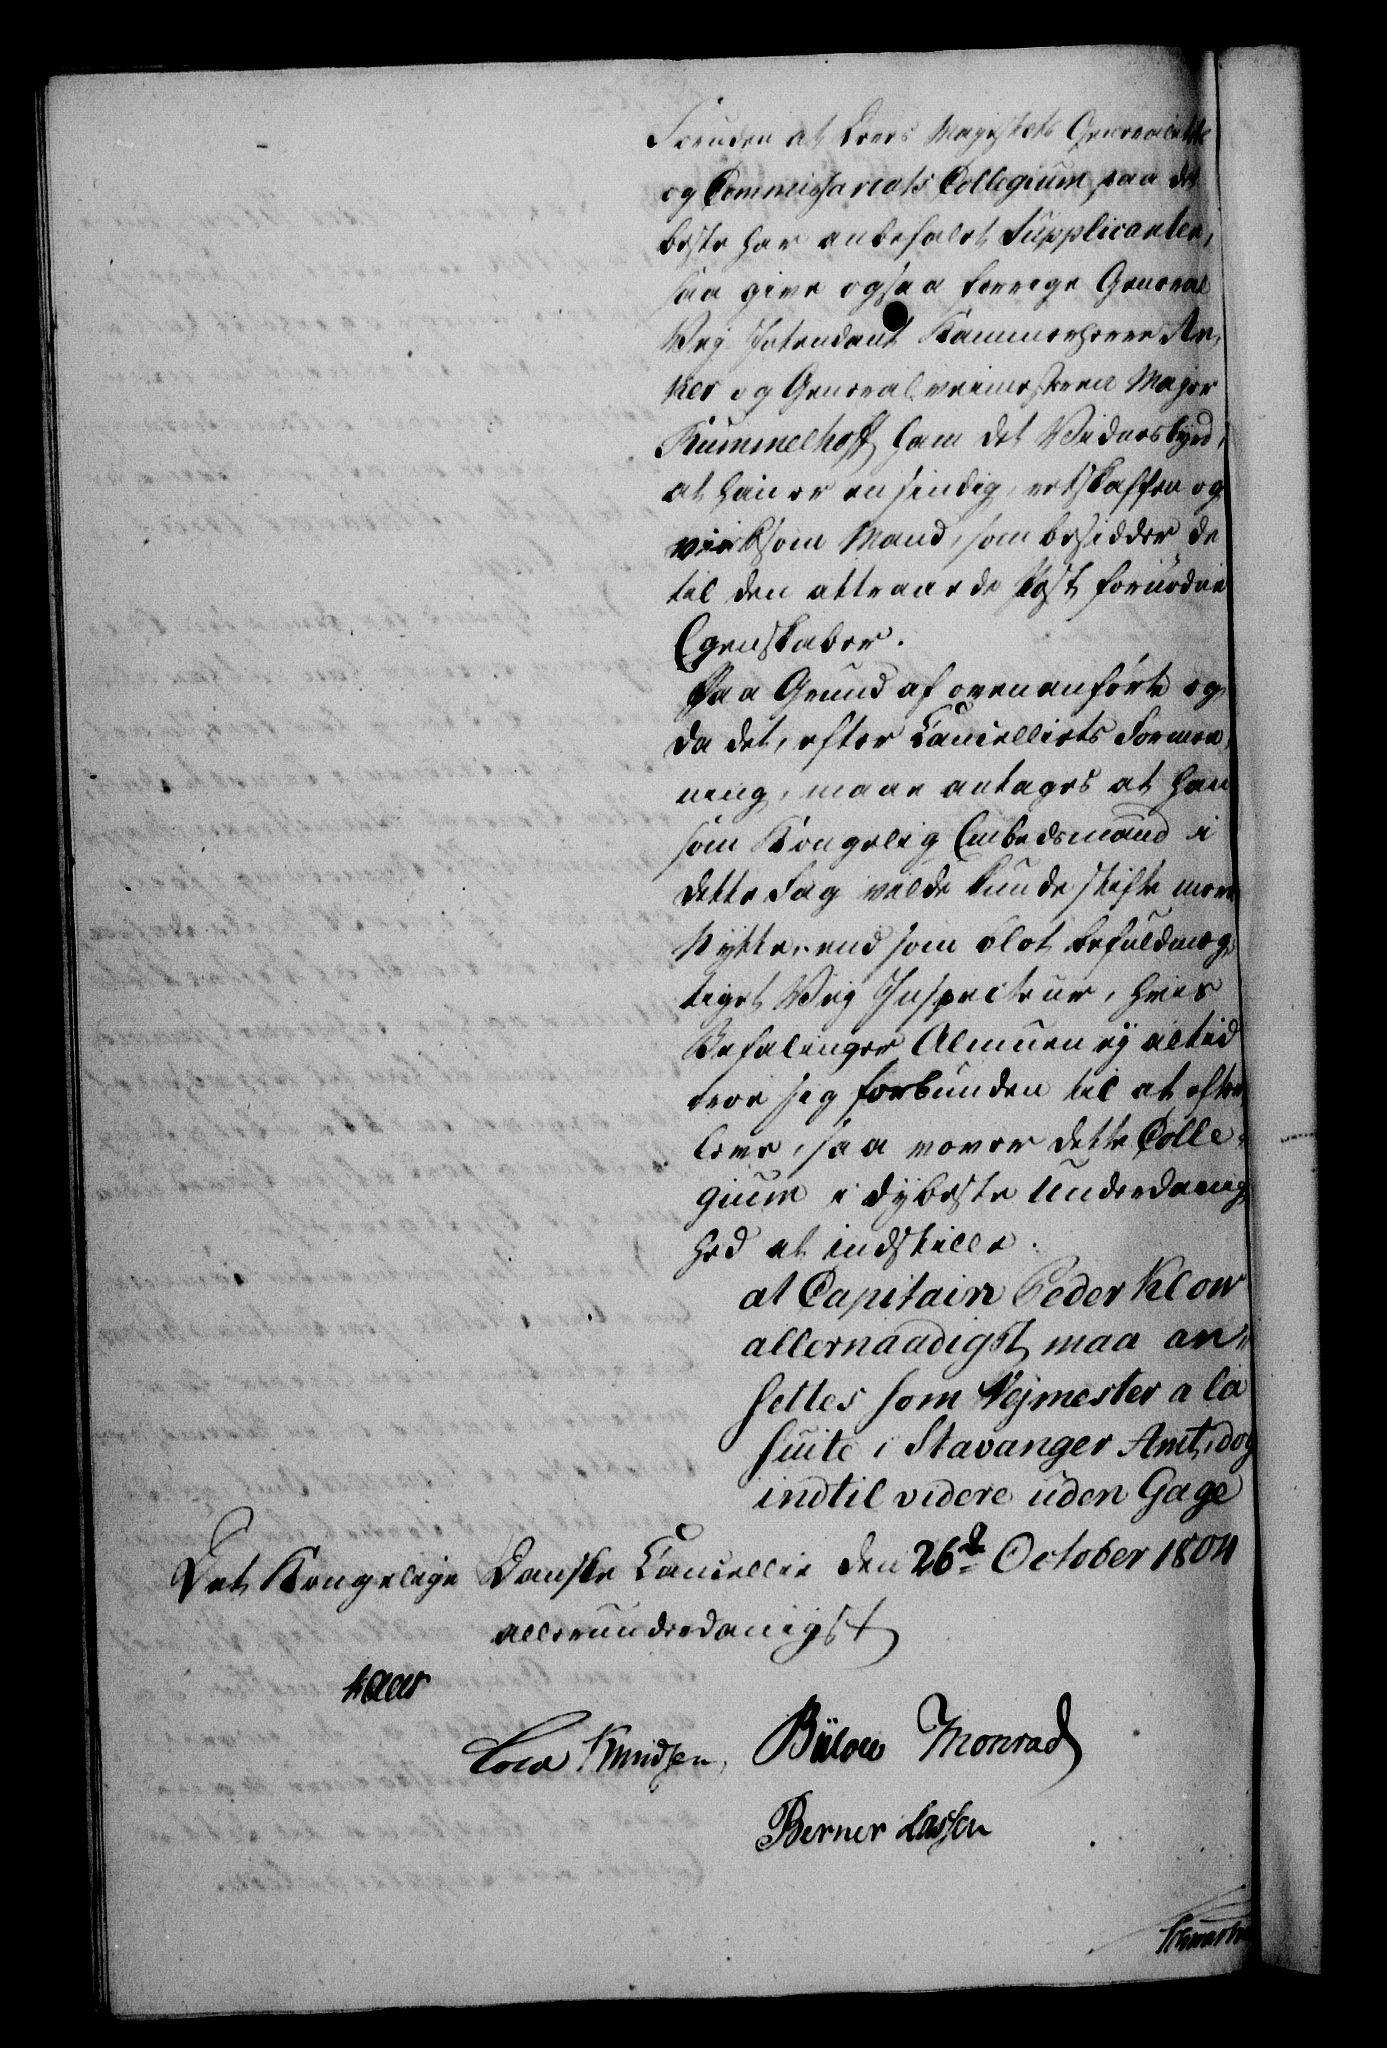 Foruden at Deres Majestæts Generalitets
og Commissariats Collegium paa det
beste har anbefalet Supplicanten,
saa give ogsaa forrige General
Vej Intendant Kammerherre An,
ker og Generalveimesteren Major
Kummelhoff ham det Vidnesbyrd,
at han er en sindig, retskaffen og
virksom Mand, som besidder de
til den attraaede Post fornødne
Egenskaber.
Paa Grund af ovenanførte og
da det, efter Cancelliets Formee,
ning, maae antages at han
som Kongelig Embedsmand i
dette Fag vilde kunde stifte mere
Nytte, end som blot befuldmæg,
tiget Vej Inspecteur, hvis
Befalinger Almuen ej altid
troe sig forbunden til at efter
leve, saa vover dette Colle,
gium i dybeste Underdanig
hed at indstille.
at Capitain Peder Klow
allernaadigst maa an„
settes som Vejmester a la
suite i Stavanger Amt, dog
indtil videre uden Gage
Det Kongelige Danske Cancellie den 26d October 1804
allerunderdanigst
Kaas
Cold Knudsen, Bülow Monrad
Berner Lassen